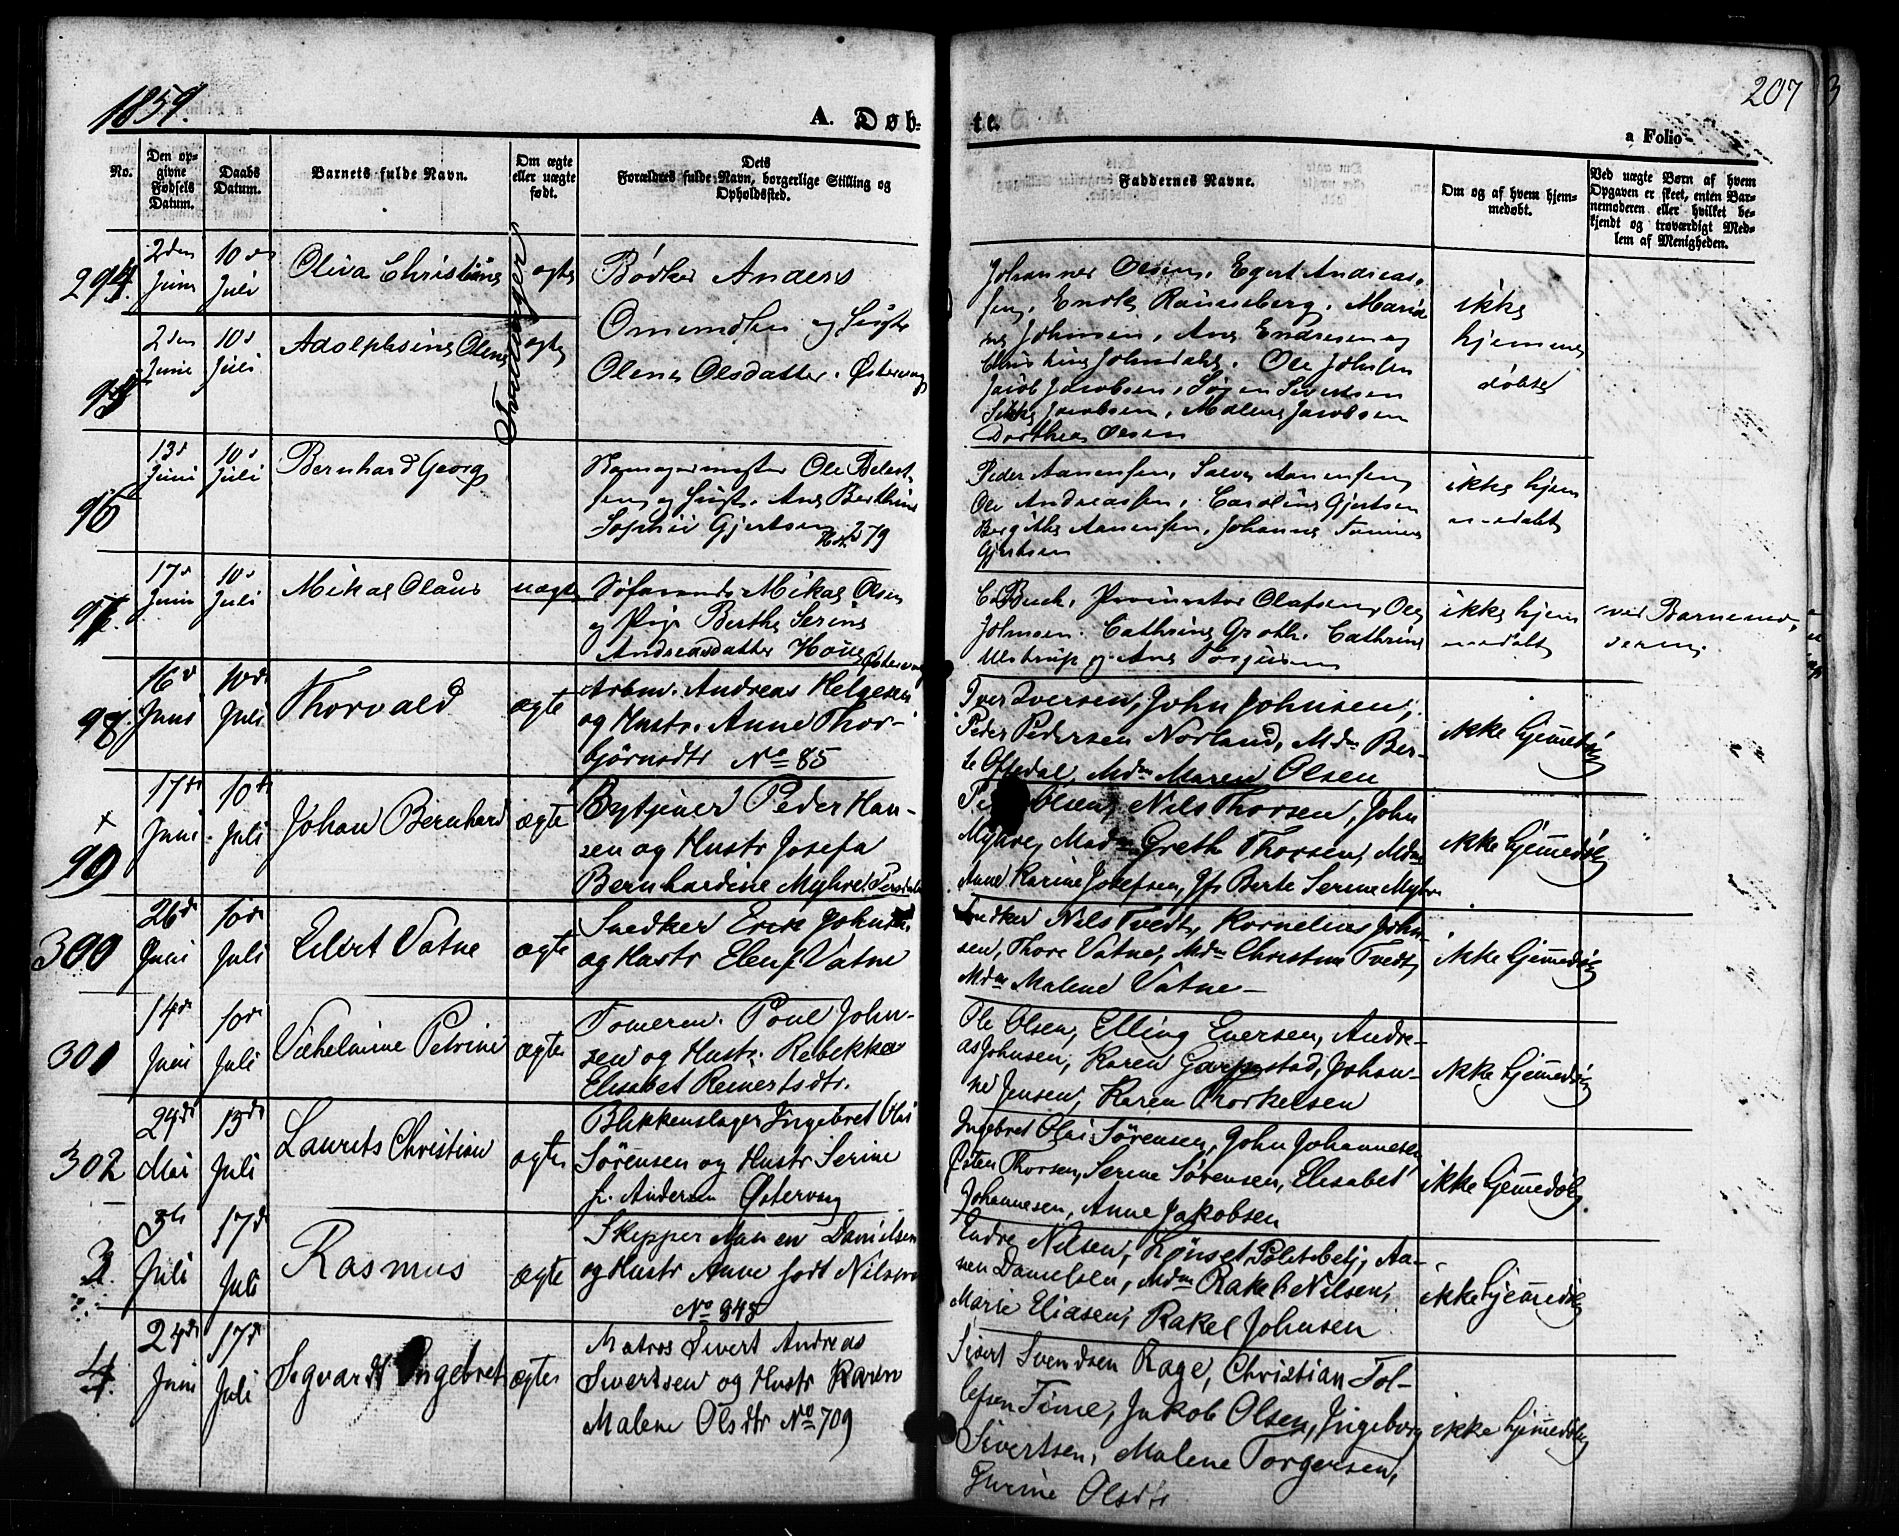 1859.
A. Døb-
te.
207
a Folio
No.
Den op-
givne
Fødsels
Datum.
Daabs
Datum.
Barnets fulde Navn.
Om ægte
eller uægte
født.
Dets
Forældres fulde Navn, borgerlige Stilling og
Opholdssted.
Faddernes Navne.
Om og af hvem hjem-
medøbt.
Ved uægte Børn af hvem
Opgaven er skeet, enten Bar-
nemoderen eller hvilket be-
kjendt og troværdigt Med-
lem af Menigheden.
294.
2den
Juni
10de
Juli
Oliva Christine
ægte
Bødker Anders
Omundsen og Hustr
Olene Olsdatter. Østervaag
Johannes Olsen, Egert Andreas-
sen, Endre Rausseberg, Marid
Johnsen, Ane Endresen og
Ole Johnsen
Jacob Jacobsen, Søren Sivertsen
Jacobsen, Malene Jacobsen
Dorthea Olsen
ikke
hjemme
døbte
95
2den
Juni
10d
Juli
Adolphine Olene
ægte
Tvillinger
96
13d
Juni
10d
Juli
Bernhard Georg
Ole Berent-
sen og Hustr. Ane Berthine
Sophie Gjertsen No 279
Peder Aanensen, Salve Aanensen
Ole Andreassen, Caroline Gjertsen
Bergithe Aanensen, Johanne
Gjertsen
ikke hjem
medøbt
97.
17d
Juni
10d
Juli
Mikal Olaus
uægte
Søfarende Mikal Olsen
og Pige Berthe Serine
Andreasdatter Høne Østervaag
Buch, Procurator Olafsen, Ole
Johnsen. Cathrine Groth. Cathrine
Ulstrup og Ane Torgersen
ikke hjem
medøbt
ved Barnemo-
deren
98.
16d
Juni
10de
Juli
Thorvald
ægte
Arbm. Andreas Helgesen
og Hustr. Anne Thor-
bjørnsdtr No 85
Iver Iversen, John Johnsen,
Peder Pedersen Norland, Mdm Ber-
te Oftedal, Mdm Maren Olsen
ikke hjemedøbt
99
17de
Juni
10de
Juli
Johan Bernhard
ægte
Bytjener Peder Han-
sen og Hustr Josefa
Bernhardine Myhre.
Olsen, Nils Thorsen, John
Myhre, Madm Grethe Thorsen, Mdm
Anne Karine Josefsen, Jfr Berte Serine Myhre
ikke hjemedøbt
300
26d
Juni
10de
Juli
Eilert Vatne
ægte
Snedker Erik Johnsen
og Hustr Elen f. Vatne
Snedker Nils Tvedt, Kornelius John-
sen, Thore Vatne, Mdm Christine Tvedt,
Mdm Malene Vatne
ikke hjemedøbt
301
14de
Juni
10de
Juli
Vilhelmine Petrine
ægte
Tømrem. Poul John-
sen og Hustr. Rebekka
Elisabet Reinertsdtr.
Ole Olsen, Elling Eversen, Andre-
as Johnsen, Karen Garpestad, Johan-
ne Jensen, Karen Thorkelsen
ikke hjemedøbt
302
29de
Mai
15de
Juli
Laurits Christian
ægte
Blikkenslager Ingebret Olai
Sørensen og Hustr Serine
f. Andersen Østervaag
Ingebret Olai Sørensen, John Johannesen
Østen Thorsen, Serine Sørensen, Elisabet
Johannesen, Anne Jakobsen
ikke hjemedøbt.
3
Juli
17de
Juli
Rasmus
ægte
Skipper Aanen Danielsen
og Hustr Anne født Nilsen
No 848
Endre Nilsen, Politibetj, Aa-
nen Danielsen, Mdm Rakel Nilsen,
Marie Eliasen, Rakel Johnsen
ikke hjemedøbt
4
24de
Juni
17de
Juli
Sigvardt Ingebret
ægte
Matros Sivert Andreas
Sivertsen og Hustr Karen
Malene Olsdtr No 709
Sivert Svendsen Rage, Christian Tol-
lefsen Time, Jakob Olsen, Ingeborg
Sivertsen, Malene Torgersen,
Gurine Olsdtr
ikke hjemedøbt